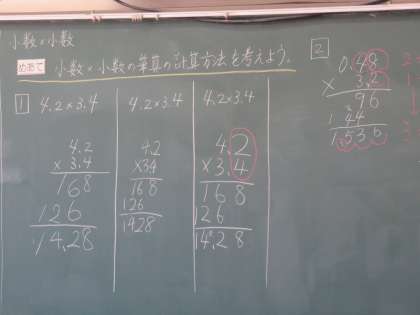 小数×小数
めあて 小数×小数の筆算の計算方法を考えよう。
1
4.2×3.4
4.2
×3.4
168
126
14.28
4.2×3.4
42
×34
168
126
1428
4.2×3.4
4.2
×3.4
168
126
14.28
2
0.48
×3.2
96
144
1.536